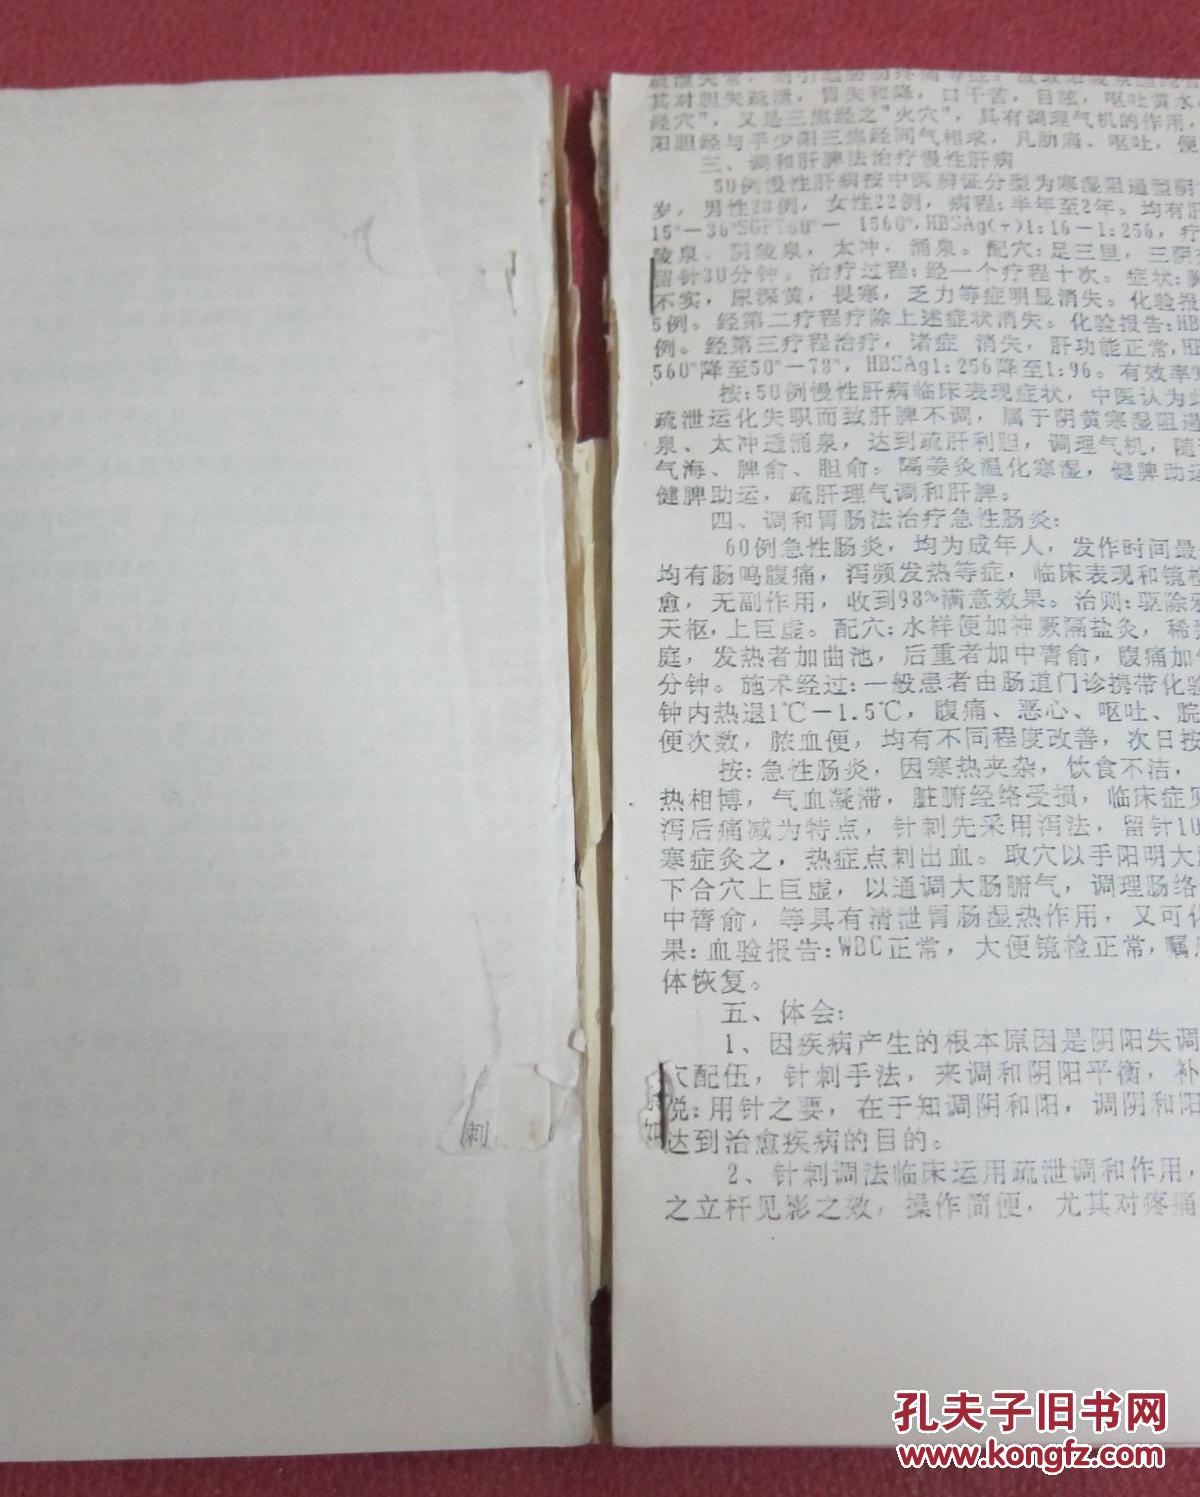 其对胆失疏泄，胃失和降，口干苦，目眩，呕吐黄水
经穴"，又是三焦经之"火穴"，具有调理气机的作用，
阳胆经与手少阳三焦经同气相求，凡肋痛、呕吐，便
三、调和肝脾法治疗慢性肝病
50例慢性肝病按中医辨证分型为寒湿阻遏型阴
岁，男性28例，女性22例，病程：半年至2年。均有肝
15°－36°SGPT60°－ 1560°，HBSAg(+)1:16－1:256，疗
陵泉、阴陵泉，太冲，涌泉。配穴：足三里，三阴
留针30分钟。治疗过程：经一个疗程十次。症状：
不实，尿深黄，畏寒，乏力等症明显消失。化验报
5例。经第二疗程疗除上述症状消失。化验报告：HB
例。经第三疗程治疗，诸症 消失，肝功能正常，HB
560°降至50°－78°，HBSAg1:256降至1:96。有效率
按：50例慢性肝病临床表现症状，中医认为
疏泄运化失职而致肝脾不调，属于阴黄寒湿阻遏
泉、太冲透涌泉，达到疏肝利胆，调理气机，随
气海、脾俞、胆俞。隔姜灸温化寒湿，健脾助运
健脾助运，疏肝理气调和肝脾。
四、调和胃肠法治疗急性肠炎：
60例急性肠炎，均为成年人，发作时间最
均有肠鸣腹痛，泻频发热等症，临床表现和镜检
愈，无副作用，收到98%满意效果。治则：驱除邪
天枢，上巨虚。配穴：水样便加神厥隔盐灸，稀
庭，发热者加曲池，后重者加中膂俞，腹痛加
分钟。施术经过：一般患者由肠道门诊携带化验
钟内热退1℃－1.5℃，腹痛、恶心、呕吐、脘
便次数，脓血便，均有不同程度改善，次日按
按：急性肠炎，因寒热夹杂，饮食不洁，
热相博，气血凝滞，脏腑经络受损，临床症见
泻后痛减为特点，针刺先采用泻法，留针10
寒症灸之，热症点刺出血。取穴以手阳明大肠
下合穴上巨虚，以通调大肠腑气，调理肠络
中膂俞，等具有清泄胃肠湿热作用，又可化
果：血验报告：WBC正常，大便镜检正常，嘱
体恢复。
五、体会：
1、因疾病产生的根本原因是阴阳失调
穴配伍，针刺手法，来调和阴阳平衡，补
说：用针之要，在于知调阴和阳，调阴和阳
达到治愈疾病的目的。
2、针刺调法临床运用疏泄调和作用，
之立杆见影之效，操作简便，尤其对疼痛
刺
孔夫子旧书网
www.kongfz.com